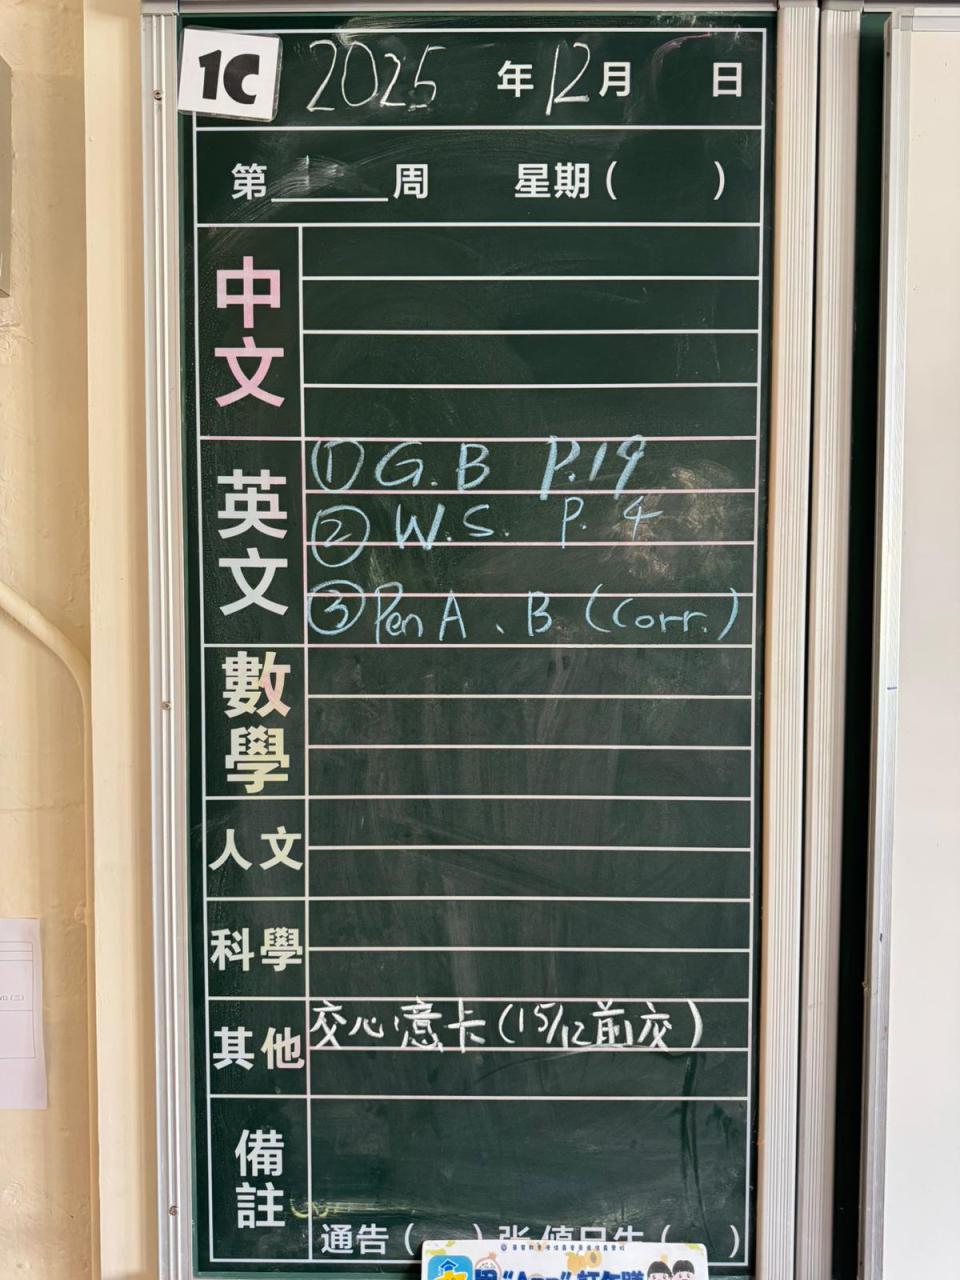 1C 2025 年 12 月 日
第 周 星期 ( )
中文
英文
① G.B P.19
② W.S. P. 4
③ Pen A、B (Corr.)
數學
人文
科學
其他
交心意卡 (15/12前交)
備註
通告 ( ) 張 值日生 ( )